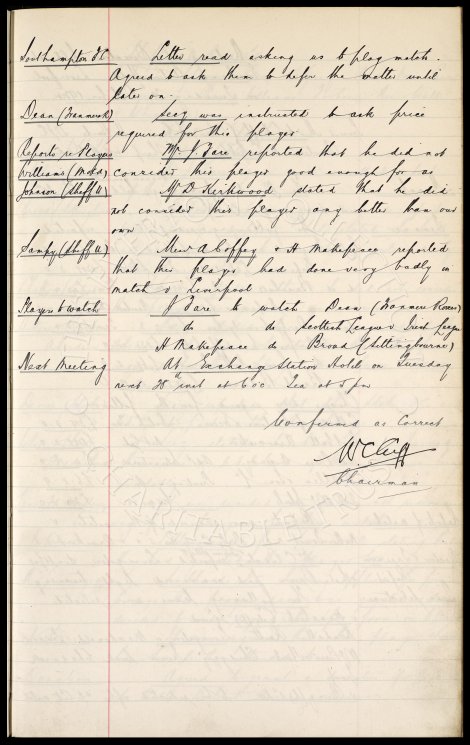 Southampton FC Letter read asking us to play match.
Agreed to ask them to defer the matter until
later on.
Dean (Tranmere R) Secy was instructed to ask price
required for this player
Reports re Players Mr J Fare reported that he did not
Williams (Mold) consider this player good enough for us
Johnson (Sheff U) Mr D Kirkwood stated that he did
not consider this player any better than our
own
Sampy (Sheff U) Messrs A Coffey & H Makepeace reported
that this player had done very badly in
match v Liverpool
Players to watch J Fare to watch Dean (Tranmere Rovers)
do do Scottish League v Irish League
H Makepeace do Broad (Sittingbourne)
Next Meeting At Exchange Station Hotel on Tuesday
next 28th inst at 6 o'c Tea at 5 pm
Confirmed as Correct
W C Cuff
Chairman
CHARITABLE TRUST